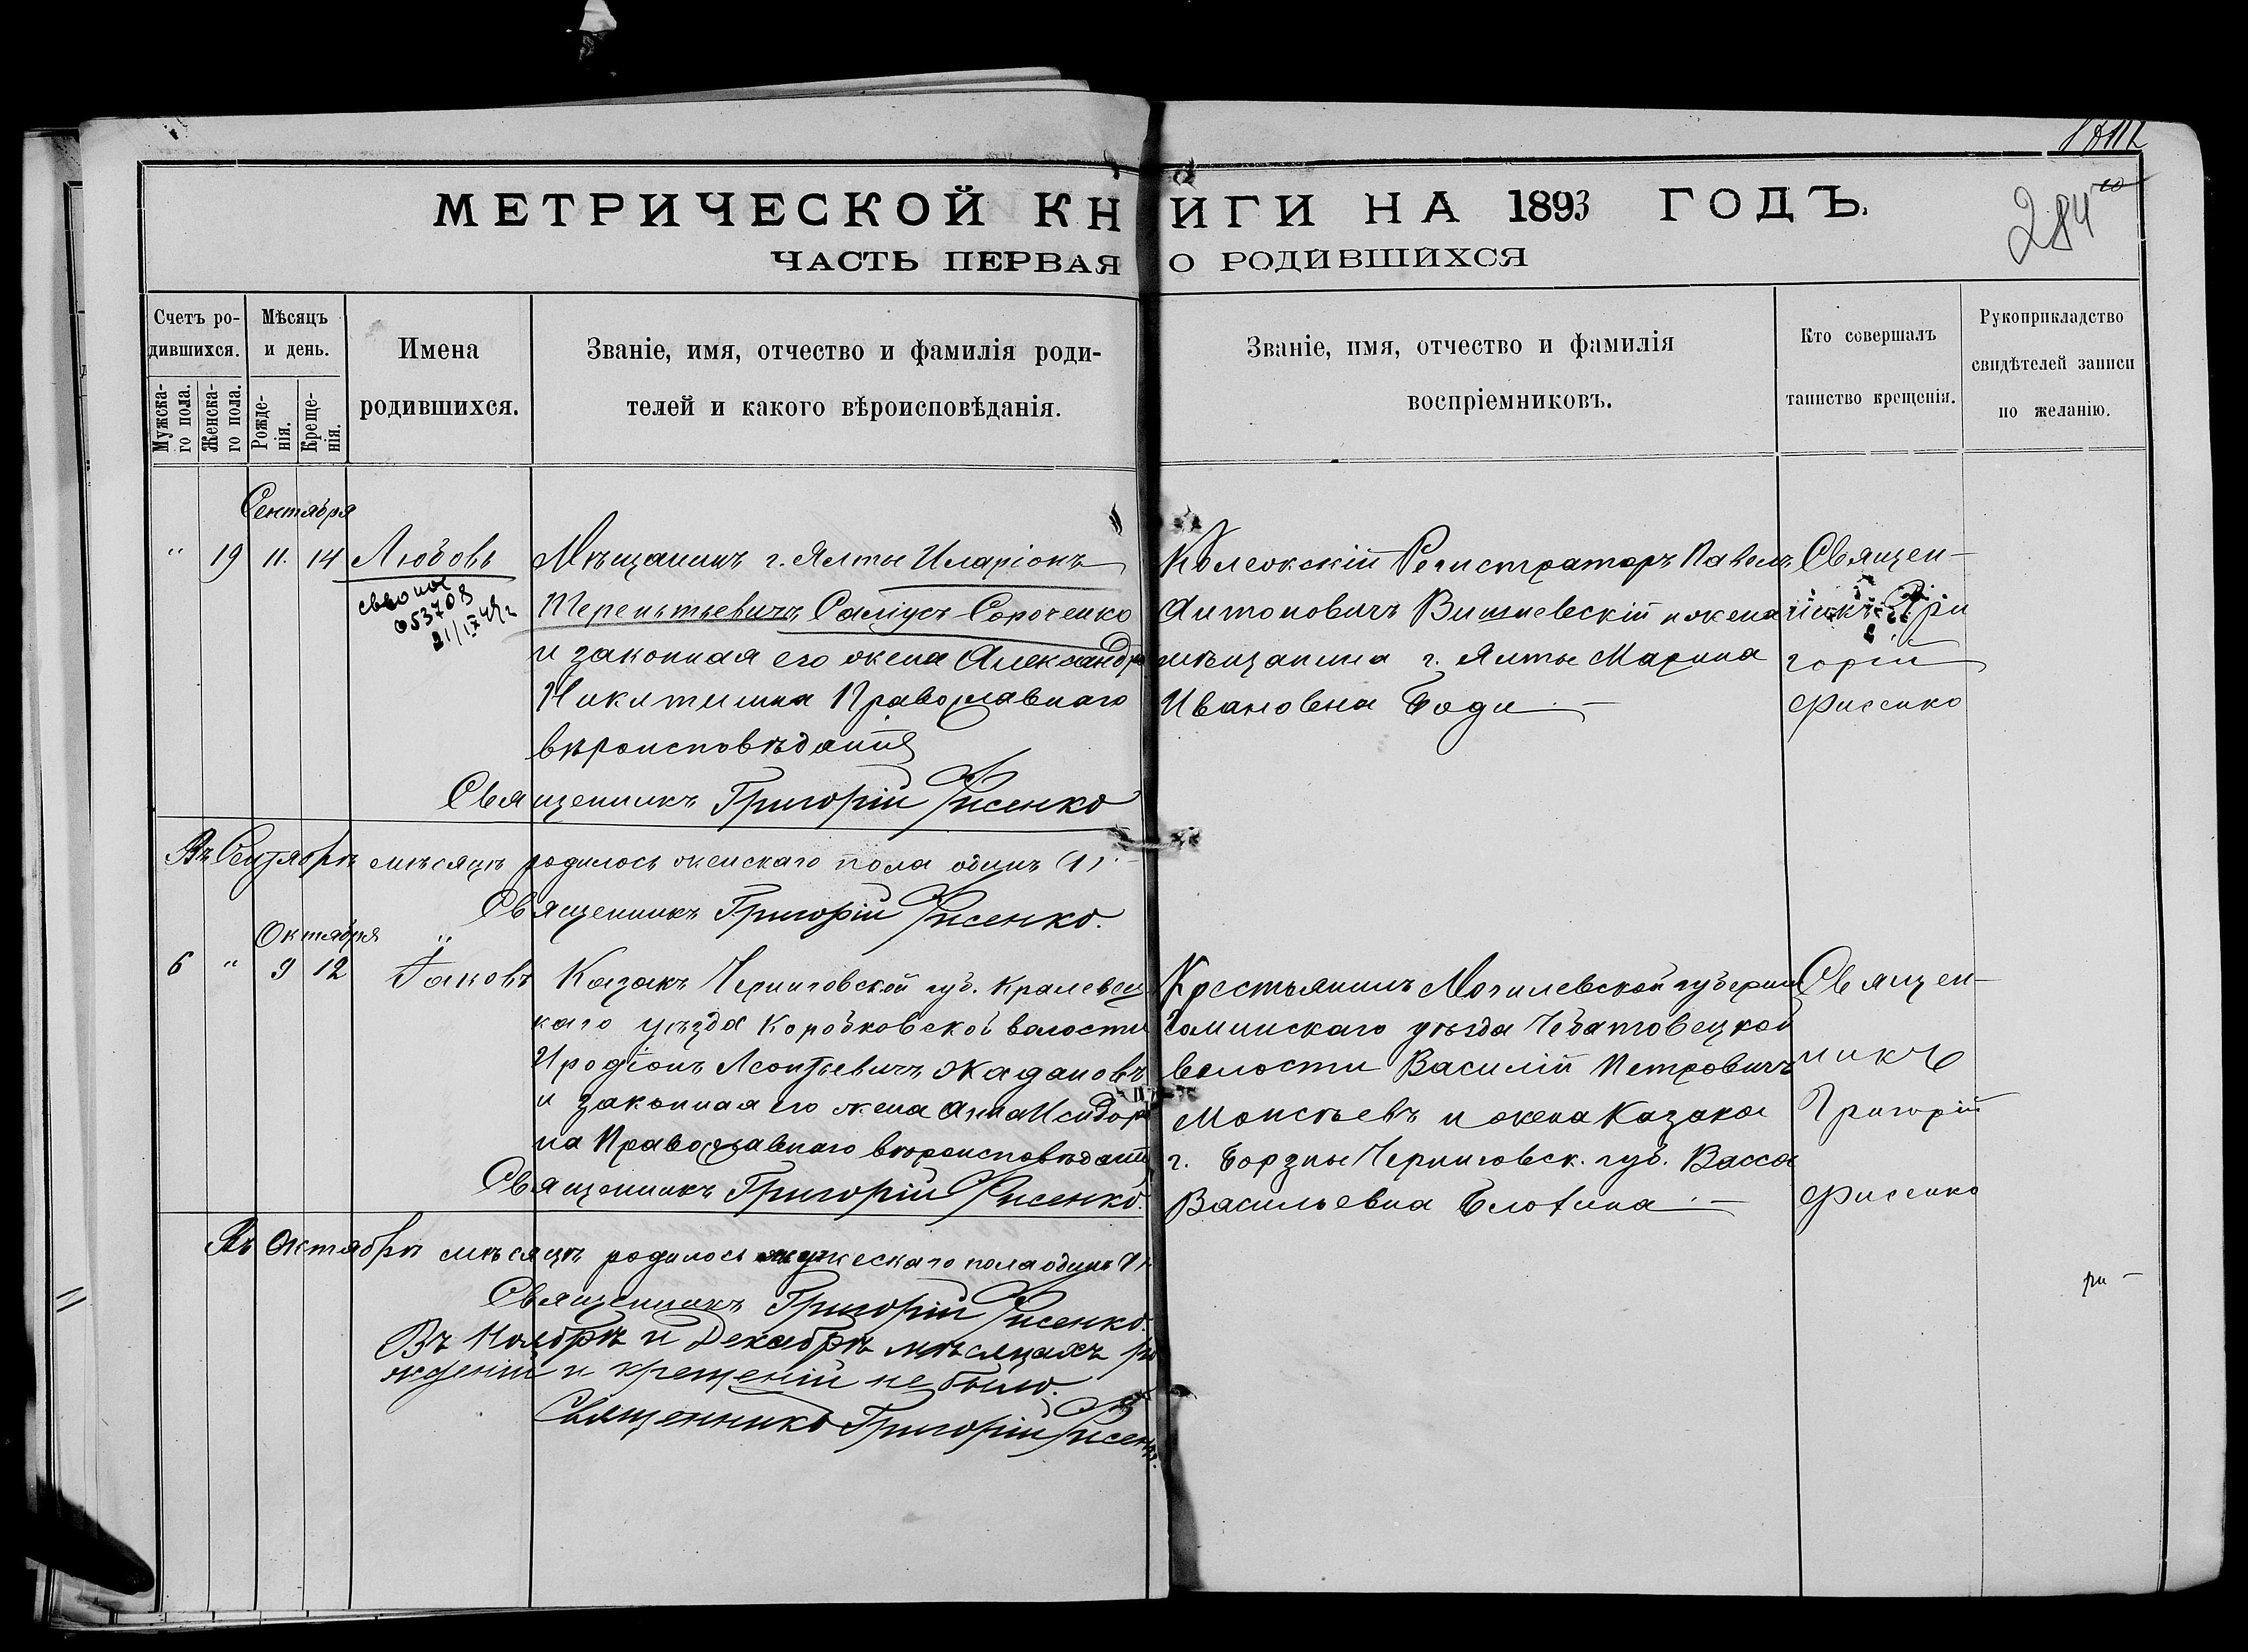 МЕТРИЧЕСКОЙ КНИГИ НА 1893 ГОДЪ.
284
ЧАСТЬ ПЕРВАЯ О РОДИВШИХСЯ
Счетъ родившихся.
Мужскаго пола.
Женскаго пола.
Мѣсяцъ и день.
Рожденія.
Крещенія.
Имена родившихся.
Званіе, имя, отчество и фамилія родителей и какого вѣроисповѣданія.
Званіе, имя, отчество и фамилія воспріемниковъ.
Кто совершалъ таинство крещенія.
Рукоприкладство свидѣтелей записи по желанію.
Сентября
" 19 11. 14 Любовь
053708
Мѣщанинъ г. Ялты Иларіонъ
Терентьевичъ Самусь-Сороченко
и законная его жена Александра
Никитишна Православнаго
вѣроисповѣданія
Священникъ Григорій Фисенко
Колежскій Регистраторъ Павелъ
Антоновичъ Вишневскій и жена
мѣщанина г. Ялты Марина
Ивановна Боди
Священ-
никъ Гри
горій
Фисенко
Въ Сентябрѣ мѣсяцѣ родилось женскаго пола одинъ (1)
Священникъ Григорій Фисенко.
Октября
6 " 9 12 Іаковъ
Казакъ Черниговской губ. Кралевец
каго уѣзда Коробковской волости
Иродіонъ Леонтьевичъ Жадановъ
и законная его жена Анна Исидоров
на Православнаго вѣроисповѣданія
Священникъ Григорій Фисенко.
Крестьянинъ Могилевской губерніи
уѣзда
волости Василій Петровичъ
Моисѣевъ и жена Казака
г. Борзны Черниговск. губ. Васса
Васильевна
Священ-
никъ
Григорій
Фисенко
Въ Октябрѣ мѣсяцѣ родилось мужескаго пола одинъ (1).
Священникъ Григорій Фисенко.
Въ Ноябрѣ и Декабрѣ мѣсяцахъ ро
жденій и крещеній не было.
Священникъ Григорій Фисенко.